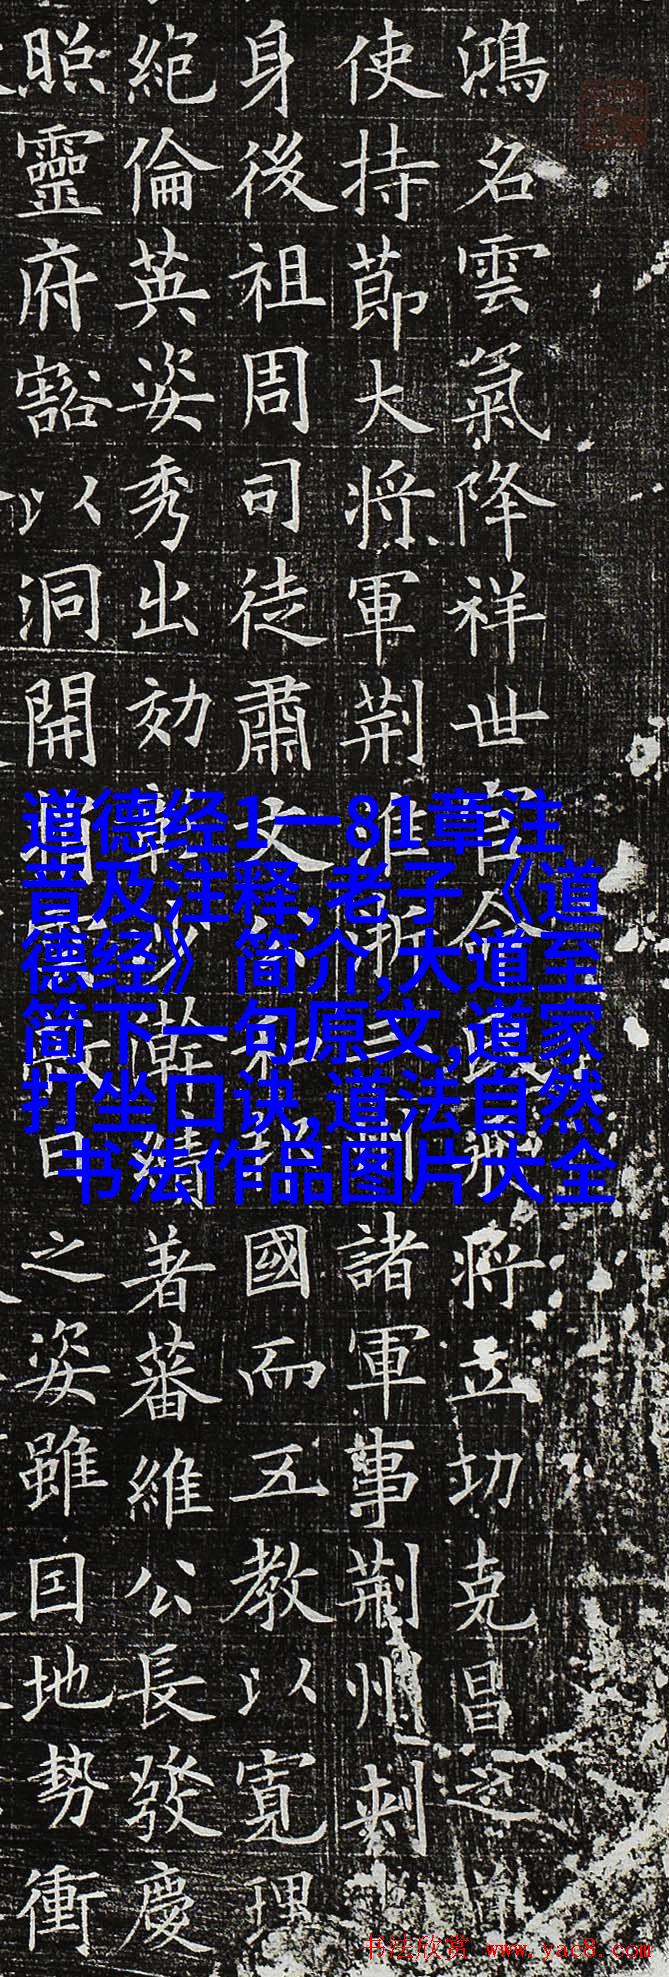 鴻名雲氣降祥世官將立功克昌之
使持節大將軍荊淮諸軍事荊州刺
身後祖周司徒肅文國而五教以寬理
絕倫英姿秀出効績著蕃維公長發慶
照靈府豁以洞開日之姿雖因地勢衝
道德经1一81章注
音及注释,老子《道
德经》简介,大道至
简下一句原文,道家
打坐口诀,道法自然
书法作品图片大全
书法欣赏 www.yac8.com